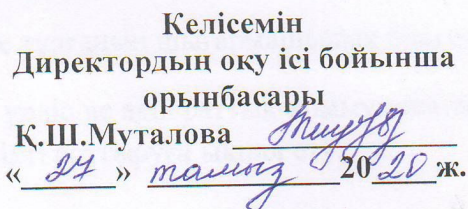 Келісемін
Директордың оқу ісі бойынша
орынбасары
Қ.Ш.Муталова
«27» тамыз 2020 ж.